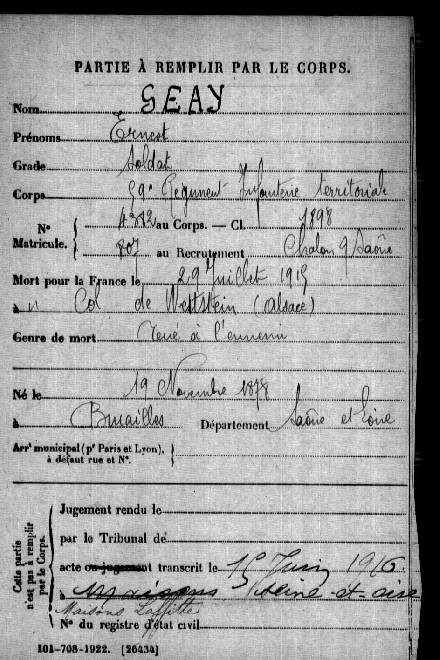 PARTIE À REMPLIR PAR LE CORPS.
Nom GEAY
Prénoms Ernest
Grade Soldat
Corps 59e Régiment Infanterie territoriale
No Matricule. { au Corps. — Cl. 1898
807 au Recrutement Chalon s/ Saône
Mort pour la France le 29 Juillet 1915
à Col de Wettstein (Alsace)
Genre de mort Tué à l'ennemi
Né le 19 Novembre 1878
à Bruailles Département Saône et Loire
Arrt municipal (pr Paris et Lyon), à défaut rue et No.
Cette partie n'est pas à remplir par le Corps.
Jugement rendu le
par le Tribunal de
acte ou jugement transcrit le Juin 1916.
à Maisons Seine-et-Oise
Maisons Laffitte
No du registre d'état civil
101-708-1922. [26434]